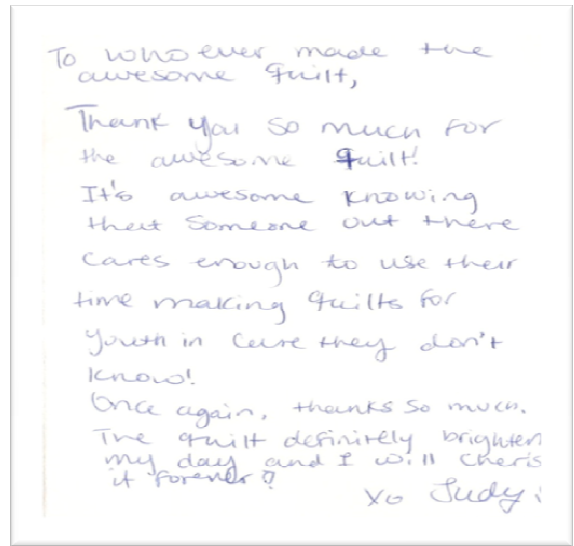 To who ever made the
awesome quilt,
Thank you so much for
the awesome quilt!
It's awesome knowing
that someone out there
cares enough to use their
time making quilts for
youth in care they don't
know!
Once again, thanks so much.
The quilt definitely brighten
my day and I will cheris
it forever!
xo Judy